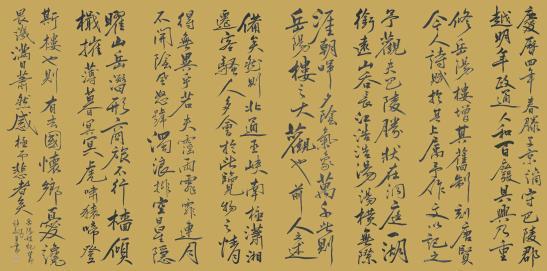 慶曆四年春滕子京謫守巴陵郡
越明年政通人和百廢具興乃重
修岳陽樓增其舊制刻唐賢
今人詩賦於其上屬予作文以記之
予觀夫巴陵勝狀在洞庭一湖
銜遠山吞長江浩浩湯湯橫無際
涯朝暉夕陰氣象萬千此則
岳陽樓之大觀也前人之述
備矣然則北通巫峽南極瀟湘
遷客騷人多會於此覽物之情
得無異乎若夫霪雨霏霏連月
不開陰風怒號濁浪排空日星隱
曜山岳潛形商旅不行檣傾
楫摧薄暮冥冥虎嘯猿啼登
斯樓也則有去國懷鄉憂讒
畏譏滿目蕭然感極而悲者矣
岳陽樓記